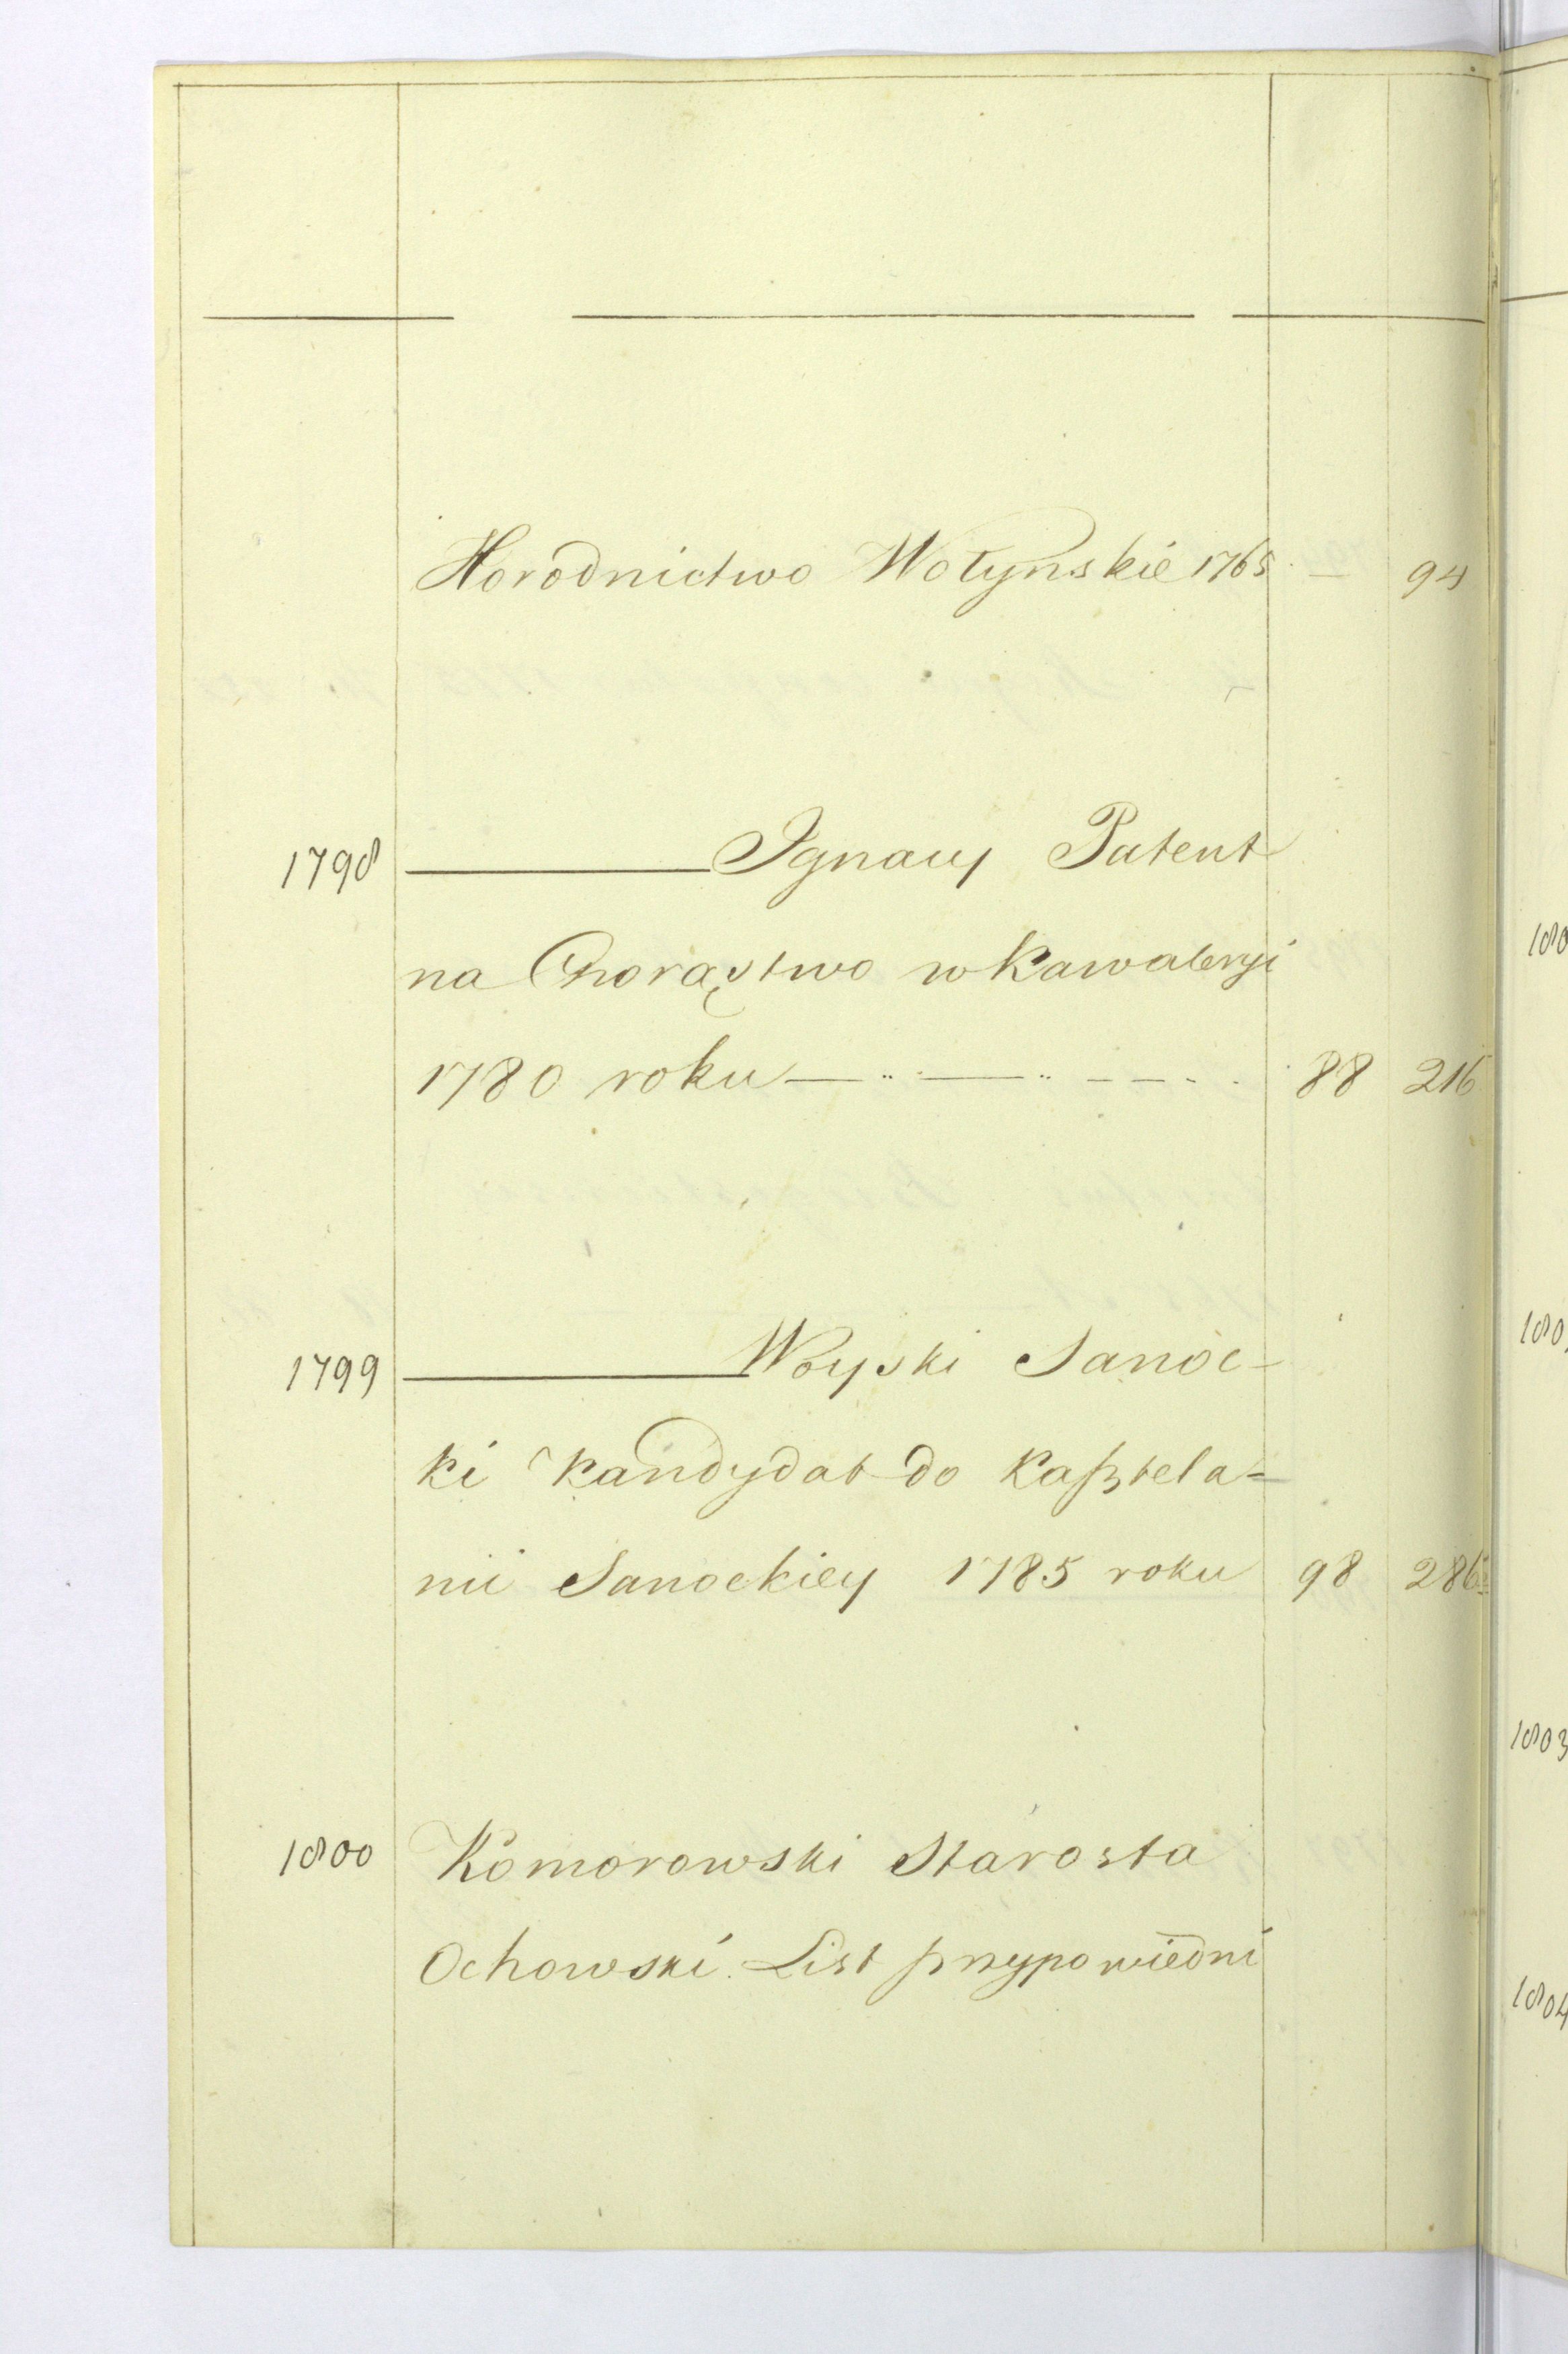 Horodnictwo Wołyńskie 1765 — 94
1798 ——— Ignacy Patent
na Chorąstwo w Kawaleryi
1780 roku — .. — .. - - - . 88 216
1799 ——— Woyski Sanoc-
ki Kandydat do Kaßtela=
nii Sanockiey 1785 roku 98 286
1800 Komorowski Starosta
Ochowski. List przypowiedni
180
180
1803
1804